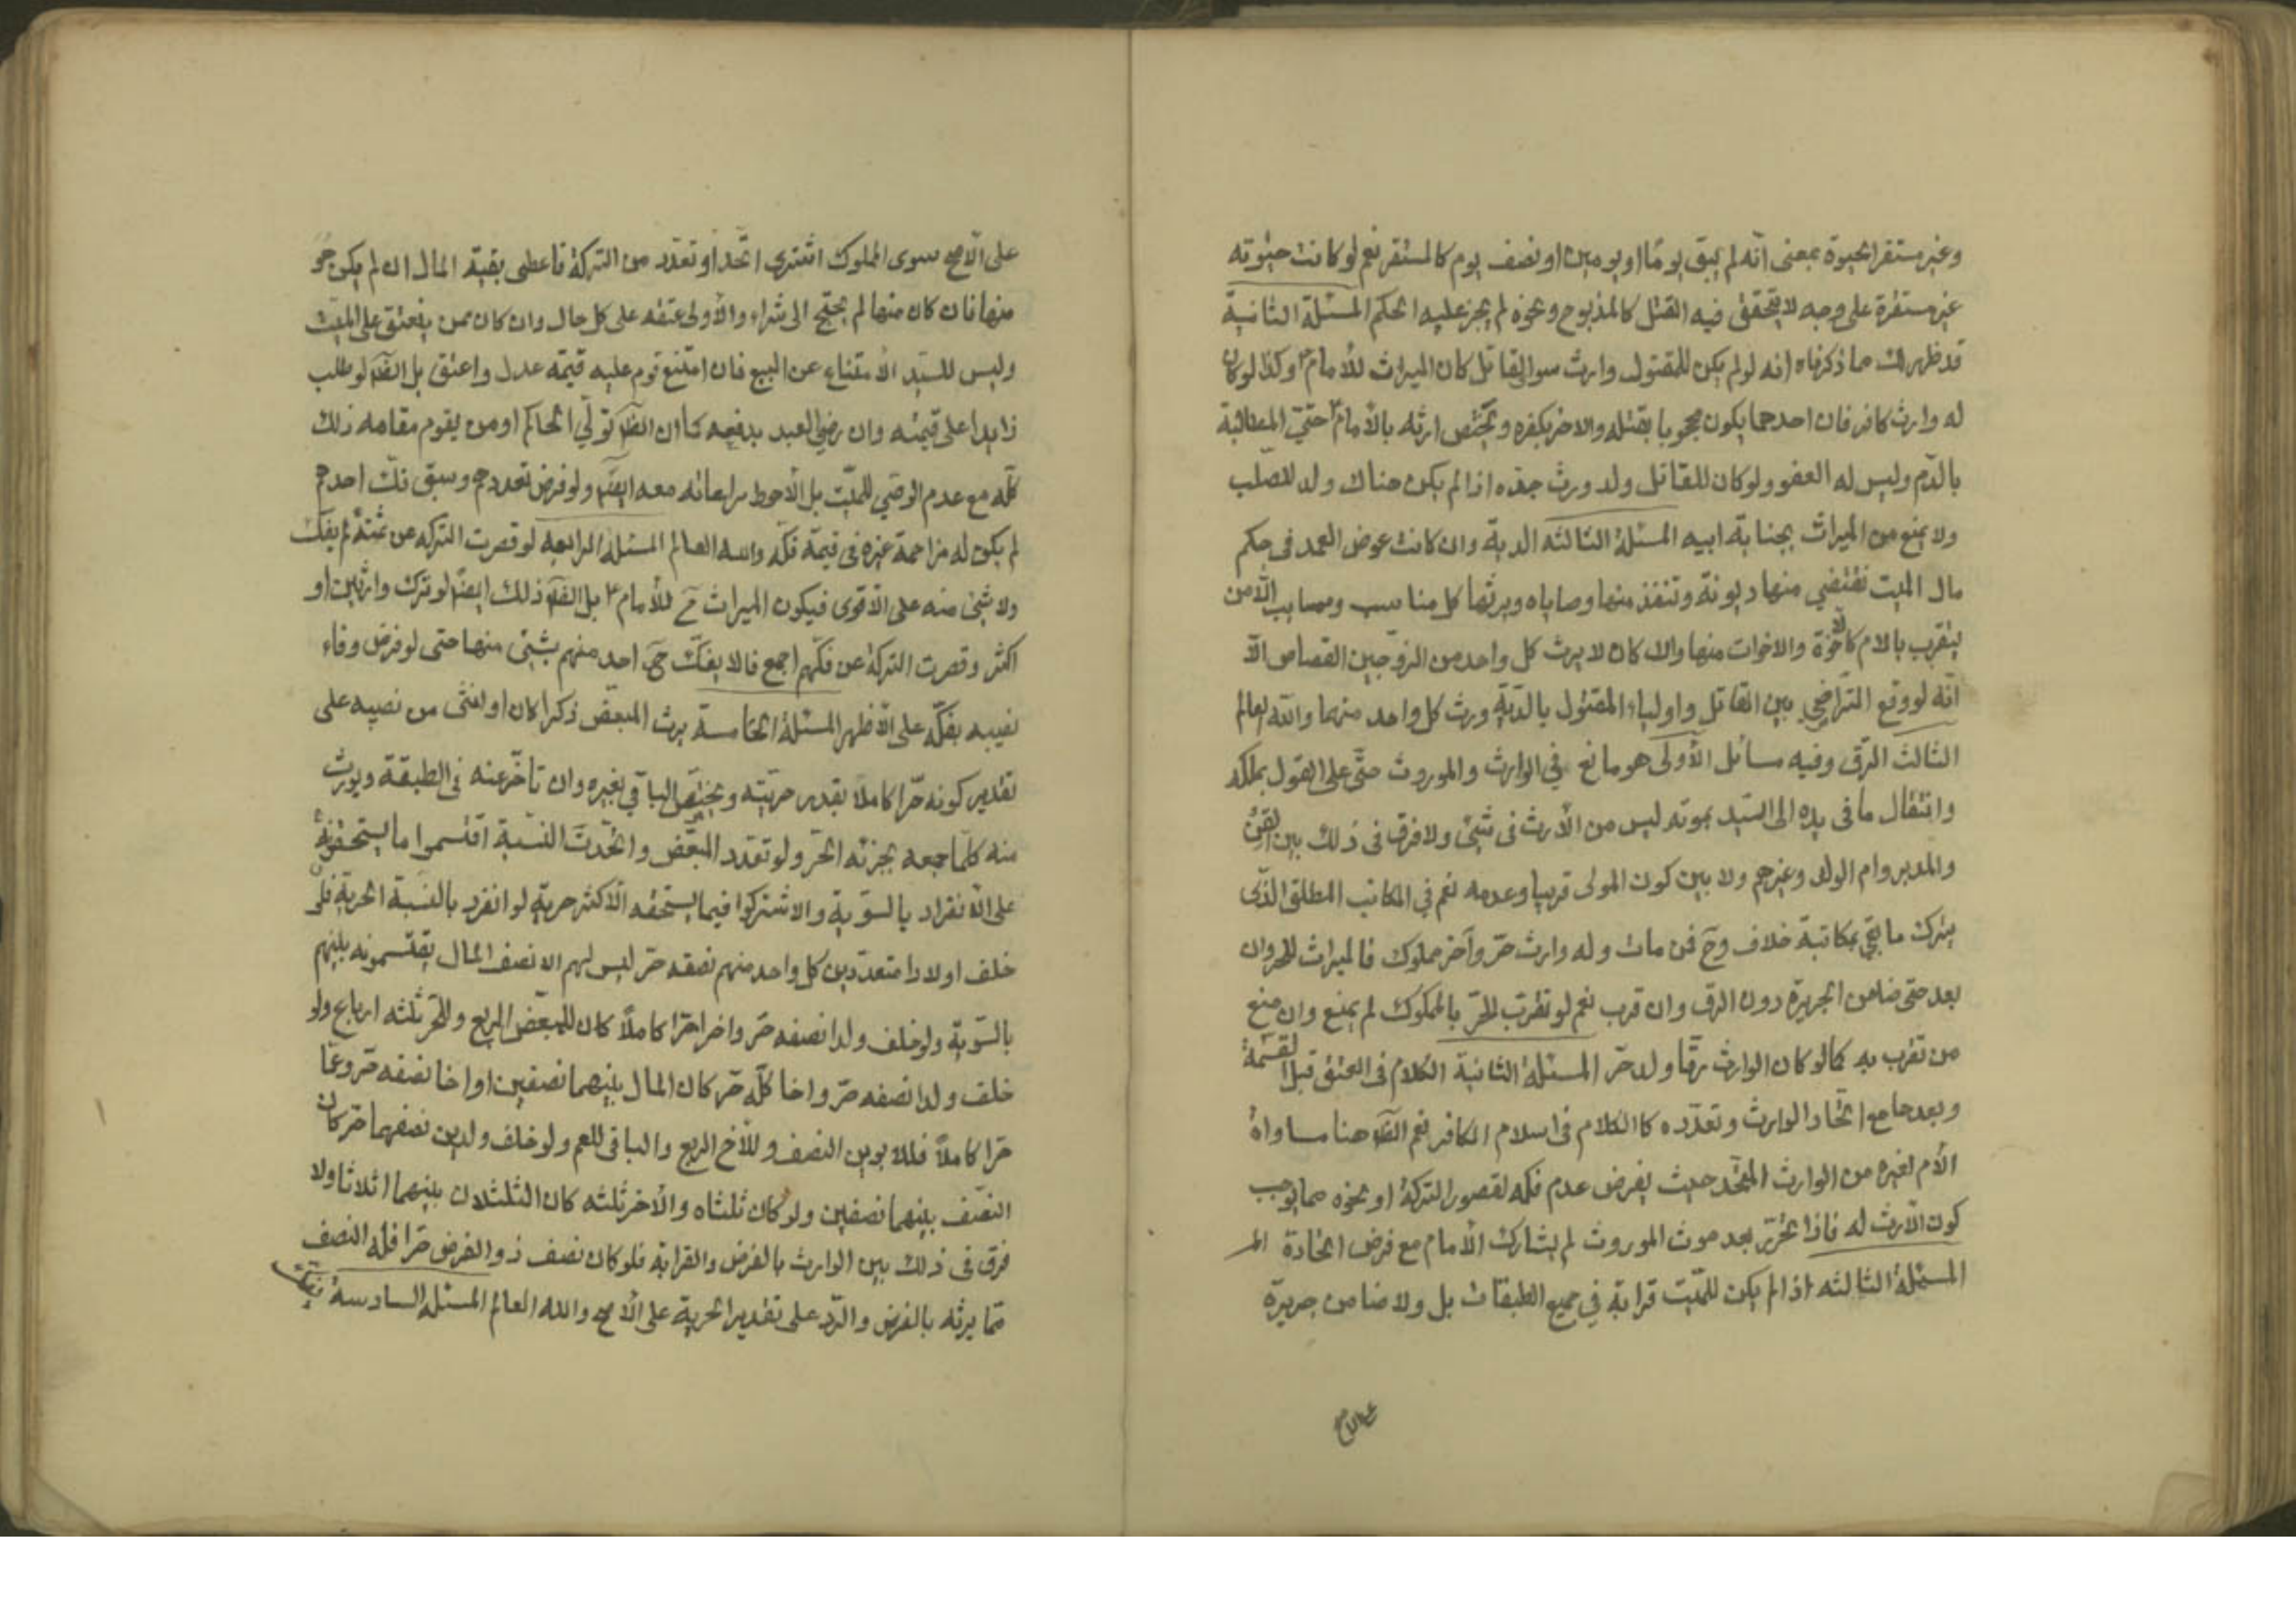 وغير مستقر الحيوة بمعنى انه لم يبق يومًا او يومين او نصف يوم كالمستقر نعم لو كانت حيوته
غير مستقرة على وجه لا يتحقق فيه القتل كالمذبوح ونحوه لم يجر عليه الحكم المسئلة الثانية
قد ظهر لك مما ذكرناه انه لو لم يكن للمقتول وارث سوى القاتل كان الميراث للأمام وكذا لو كان
له وارث كافر فان احدهما يكون محجوبا بقتله والاخر بكفره ويختص ارثه بالأمام حتى المطالبة
بالدم وليس له العفو ولو كان للقاتل ولد ورث جده اذا لم يكن هناك ولد للصلب
ولا يمنع من الميراث بجناية ابيه المسئلة الثالثه الدية وان كانت عوض العمد فى حكم
مال الميت تقتضي منها ديونه وتنفذ منها وصاياه ويرثها كل مناسب ومسابب الّا من
يتقرب بالام كالأخوة والاخوات منها والا كان لا يرث كل واحد من الزوجين القصاص الّا
انّه لو وقع التراضي بين القاتل واولياء المقتول بالديّة ورث كل واحد منهما والله العالم
الثالث الرق وفيه مسائل الأولى هو مانع في الوارث والموروث حتّى على القول بملكه
وانتقال ما فى يده الى السيّد بموته ليس من الأرث فى شيئ ولا فرق فى ذلك بين القنّ
والمدبر وام الولد وغيرهم ولا بين كون المولى قريبا وعدمه نعم في المكاتب المطلق الذى
يترك ما بقي بمكاتبة خلاف وح فمن مات وله وارث حرّ وآخر مملوك فالميراث للحر وان
بعد حتى ضامن الجريرة دون الرق وان قرب نعم لو تقرب الحرّ بالمملوك لم يمنع وان منع
من تقرب به كما لو كان الوارث رقا وله ولد حر المسئلة الثانية الكلام فى العتق قبل القسمة
وبعدها مع اتّحاد الوارث وتعدّده كالكلام فى اسلام الكافر نعم الظّ هنا مساواة
الأم لغيره من الوارث المتحد حيث يفرض عدم فكه لقصور التركة او نحوه مما يوجب
كون الأرث له فاذا تحرّر بعد موت الموروث لم يشارك الأمام مع فرض اتحاده
المسئلة الثالثه اذا لم يكن للميّت قرابة في جميع الطبقات بل ولا ضامن جريرة
على الأصح سوى المملوك اشترى اتّحد او تعدّد من التركة فاعطى بقية المال ان لم يكن هو
منها فان كان منها لم يحتج الى شراء والأولى عتقه على كل حال وان كان ممن ينعتق على الميّت
وليس للسيّد الامتناع عن البيع فان امتنع قوم عليه قيمة عدل واعتق بل الظّ لو طلب
زايدا على قيمته وان رضي العبد بدفعه كما ان الظّ تولّي الحاكم او من يقوم مقامه ذلك
كلّه مع عدم الوصي للميّت بل الأحوط مراعاته معه ايضًا ولو فرض تعددهم وسبق فكّ احدهم
لم يكن له مزاحمة غيره فى قيمة فكّه والله العالم المسئلة الرابعه لو قصرت التركه عن ثمنه لم يفكّ
ولا شيئ منه على الأقوى فيكون الميراث ح للأمام بل الظّ ذلك ايضًا لو ترك وارثين او
اكثر وقصرت التركة عن فكهم اجمع فالا يفكّ ح احد منهم بشيئ منها حتى لو فرض وفاء
نصيبه بفكّه على الأظهر المسئلة الخامسة يرث المبعّض ذكرا كان او انثى من نصيبه على
تقدير كونه حرّا كاملا بقدر حريّته ويختصّ الباقي بغيره وان تأخّر عنه فى الطبقة ويورث
منه كلّما جمعه بجزئه الحرّ ولو تعدد المبعّض واتّحدت النسبة اقتسموا ما يستحقونه
على الأنفراد بالسويّة والا اشتركوا فيما يستحقه الأكثر حرية لو انفرد بالنسبة الحرية فلو
خلف اولادا متعدّدين كل واحد منهم نصفه حرّ ليس لهم الا نصف المال يقتسمونه بينهم
بالسّويّة ولو خلف ولدا نصفه حرّ واخر احرّا كاملًا كان للمبعّض الربع وللحرّ ثلثه ارباع ولو
خلف ولدا نصفه حرّ واخا كلّه حرّ كان المال بينهما نصفين او اخا نصفه حرّ وعمّا
حرّا كاملًا فللابوين النصف وللأخ الربع والباقى للعم ولو خلف ولدين نصفهما حرّ كان
النصف بينهما نصفين ولو كان ثلثاه والأخر ثلثه كان الثلثلان بينهما اثلاثا ولا
فرق فى ذلك بين الوارث بالفرض والقرابة فلو كان نصف ذو الفرض حرّا فله النصف
مما يرثه بالفرض والرّد على تقدير الحرية على الأصح والله العالم المسئلة السادسة